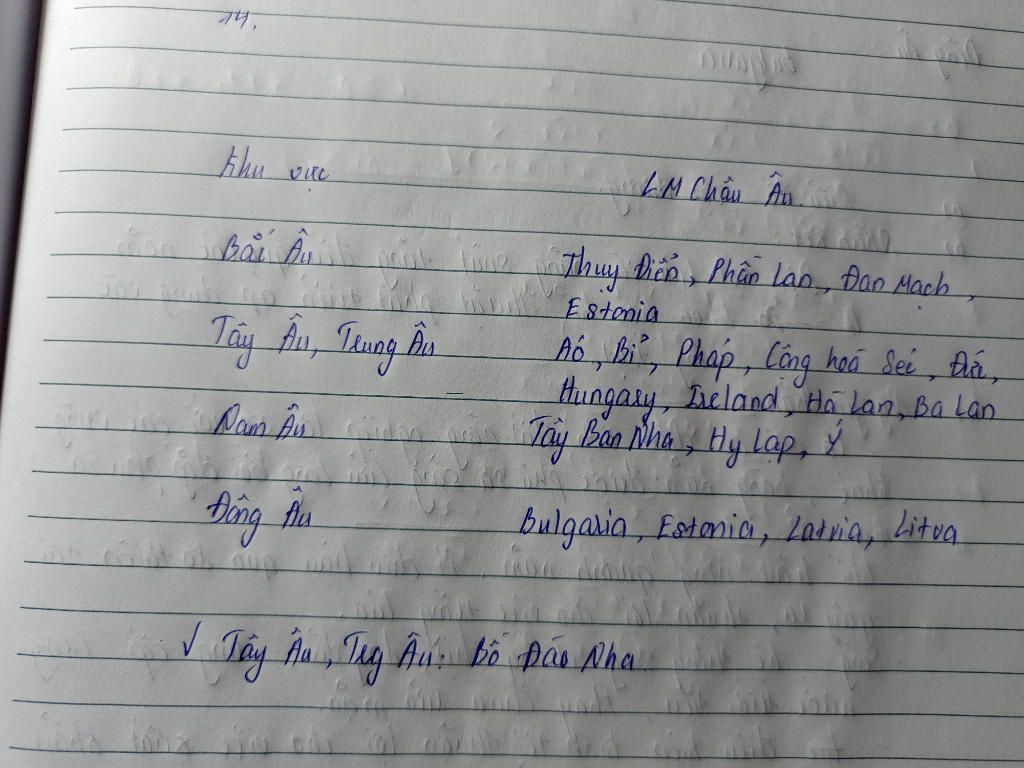 14.
Khu vực LM Châu Âu.
Bắc Âu Thụy Điển, Phần Lan, Đan Mạch,
Estonia
Tây Âu, Trung Âu Áo, Bỉ, Pháp, Công hoà Séc, Đức,
Hungary, Ireland, Hà Lan, Ba Lan
Nam Âu Tây Ban Nha, Hy Lạp, Ý
Đông Âu Bulgaria, Estonia, Latvia, Litva
√ Tây Âu, Trg Âu: Bồ Đào Nha.